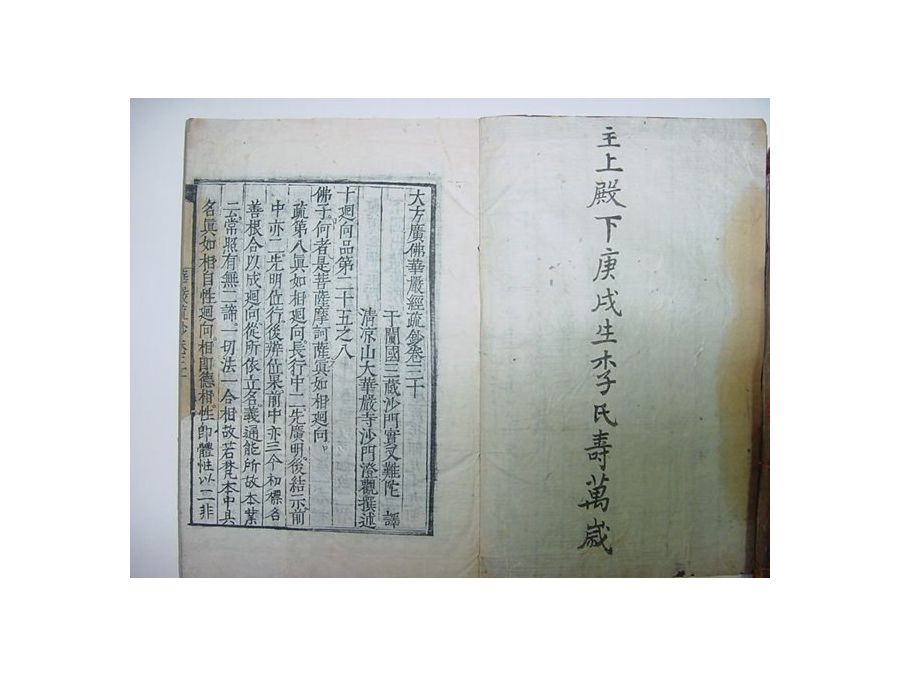 主上殿下庚戌生李氏壽萬歲
大方廣佛華嚴經疏鈔卷三十
于闐國三藏沙門實叉難陀 譯
清凉山大華嚴寺沙門澄觀撰述
十廻向品第二十五之八
佛子何者是菩薩摩訶薩眞如相廻向
疏第八眞如相廻向長行中二先廣明後結示前
中亦二先明位行後辨位果前中亦三今初標名
善根合以成廻向從所依立名義通能所故本業
云常照有無二諦一切法一合相故若梵本中具
名眞如相自性廻向相卽德相性卽體性以二非